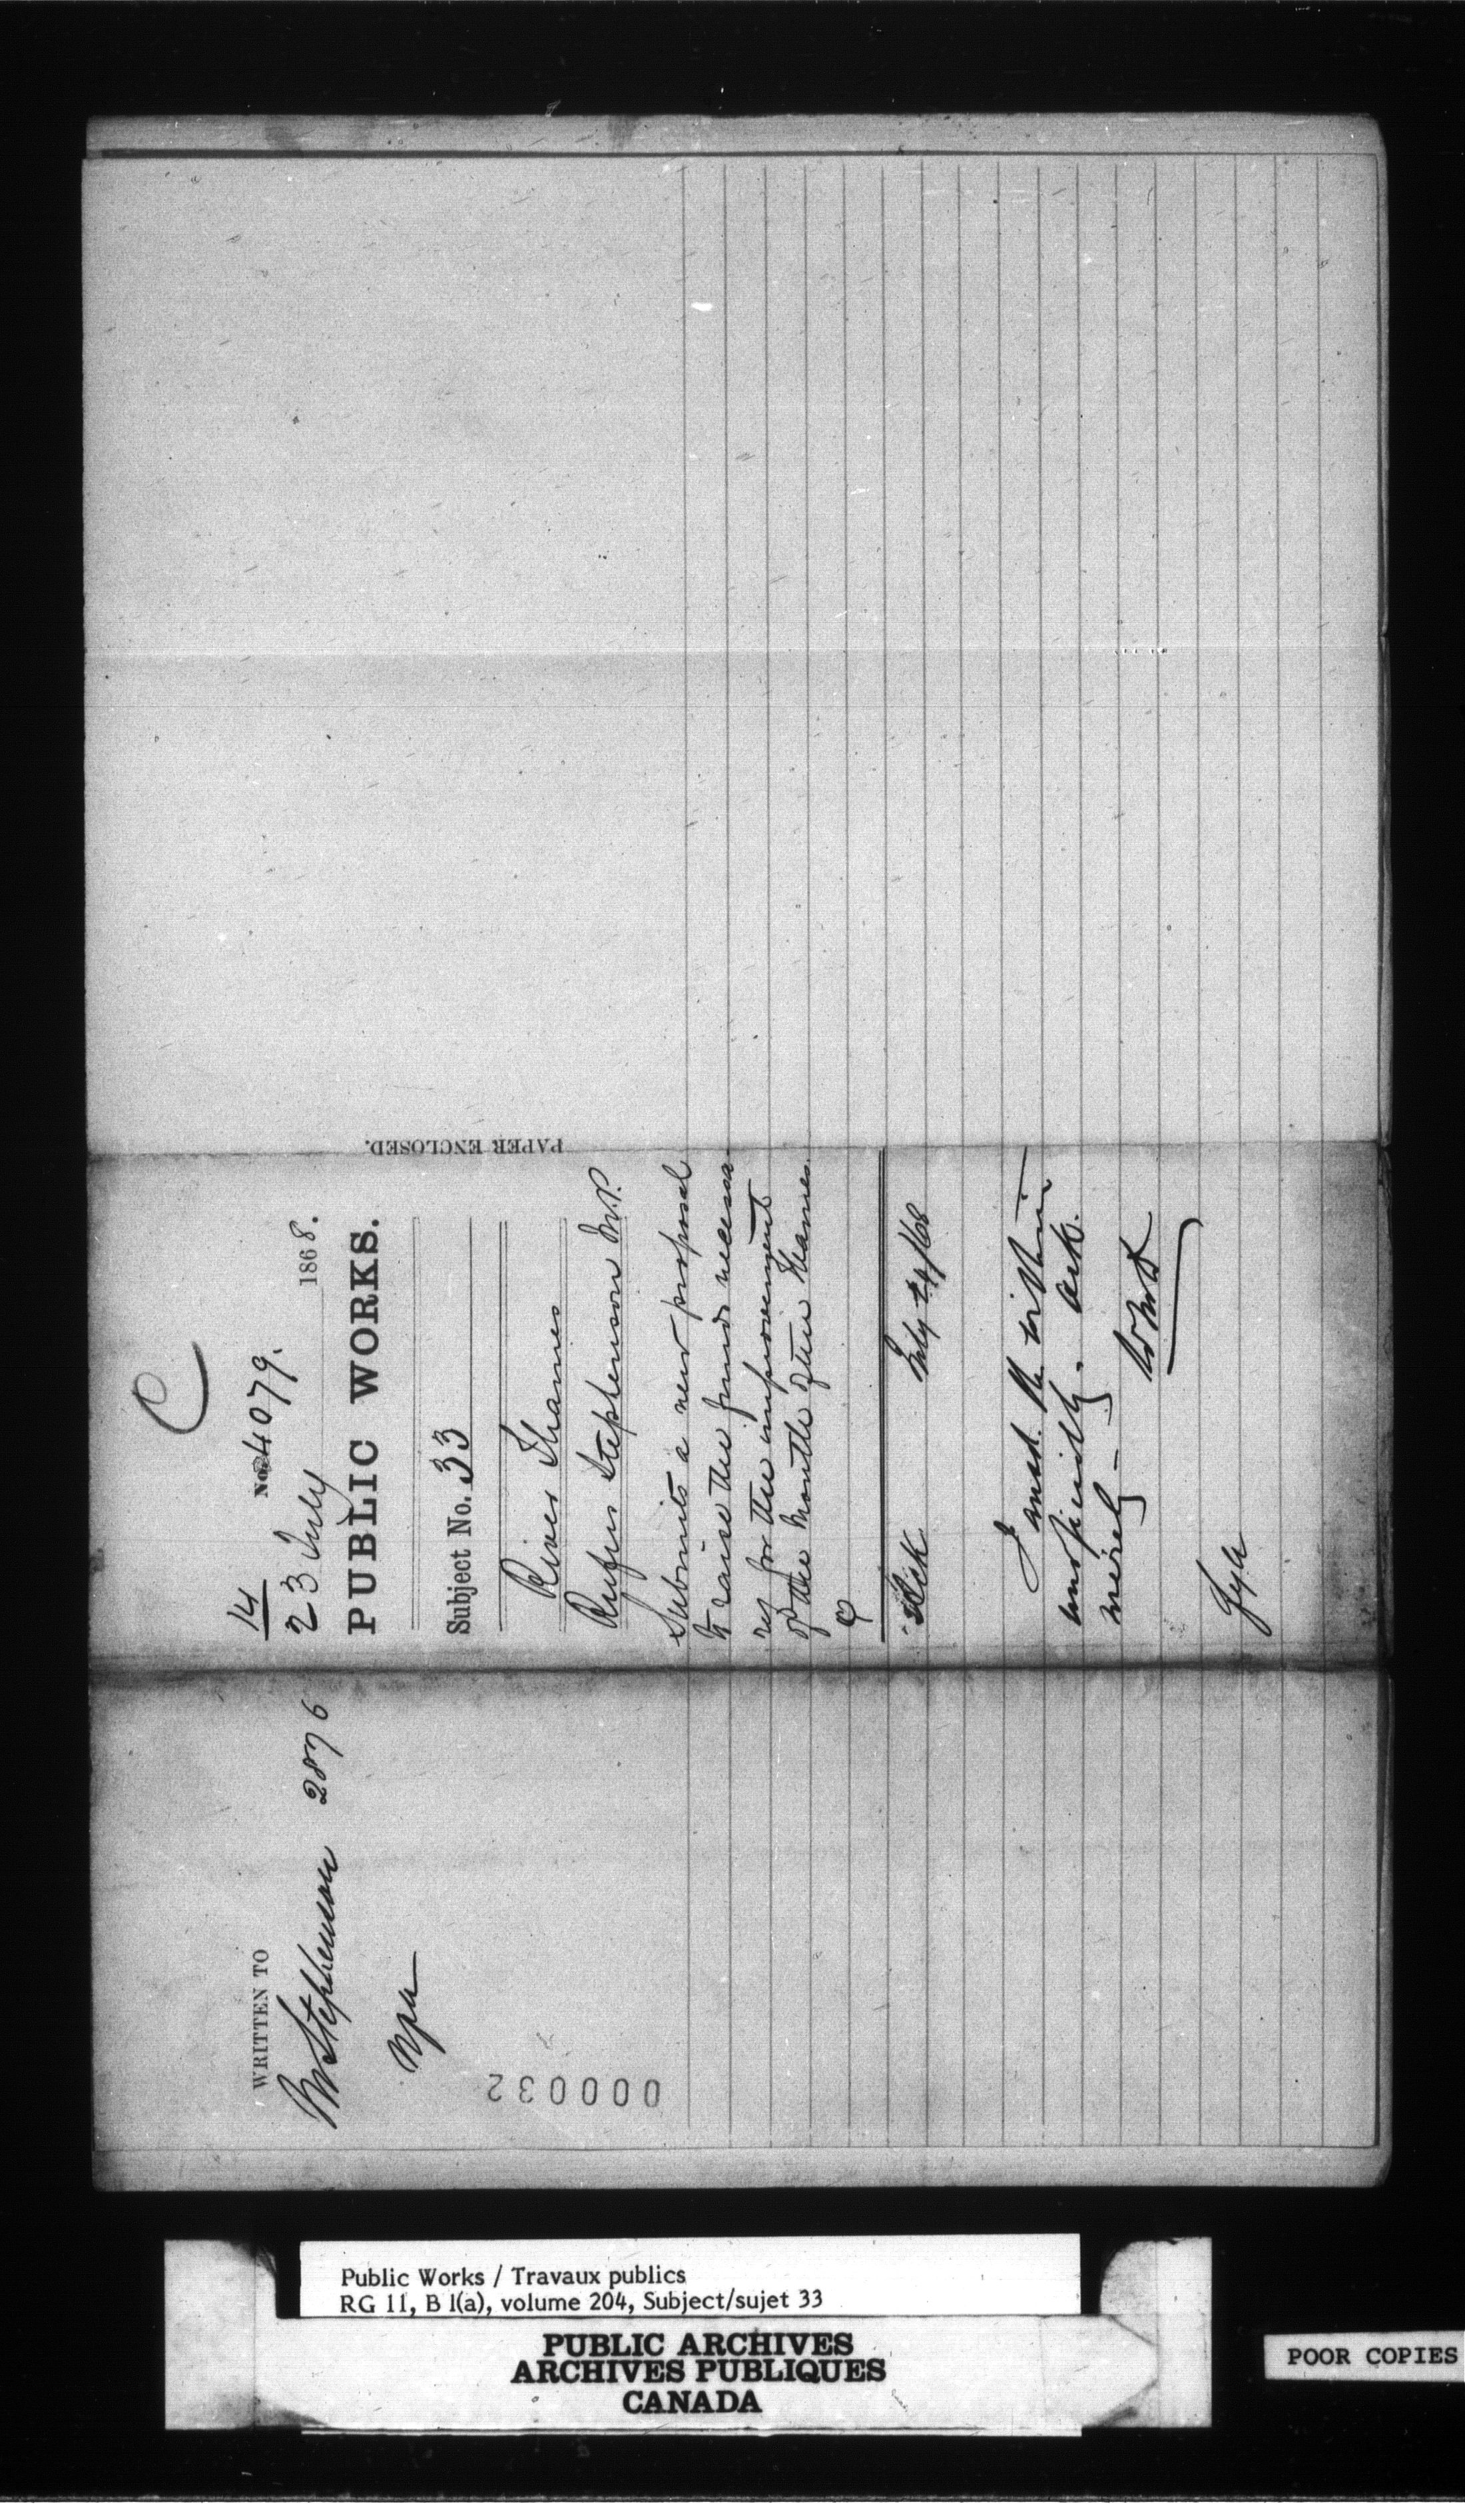 C
14
No. 4079.
23 July 1868.
PUBLIC WORKS.
Subject No. 33
River Thames
Rufus Stephenson M.P.
Submits a new proposal
to raise the funds necessa-
ry for the improvement
of the Mouth of the Thames.
Ack July 24/68
I send the within
ack.
merely
Fyle
PAPER ENCLOSED.
WRITTEN TO
Mr Stephenson 2876
000032
Public Works / Travaux publics
RG 11, B 1(a), volume 204, Subject/sujet 33
PUBLIC ARCHIVES
ARCHIVES PUBLIQUES
CANADA
POOR COPIES